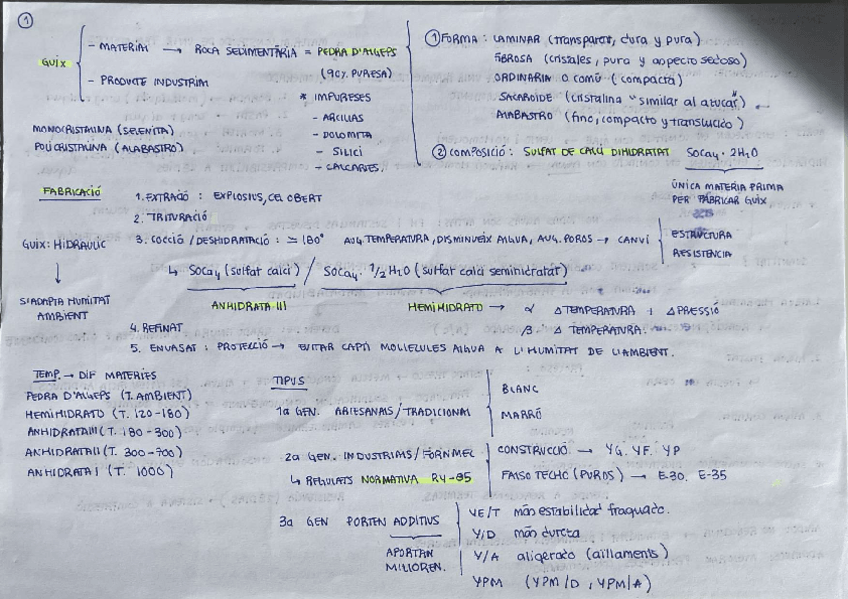 1
GUIX
- MATERIAL → ROCA SEDIMENTÀRIA = PEDRA D'ALGEPS
(90% PURESA)
- PRODUCTE INDUSTRIAL
* IMPURESES
- ARCILLAS
- DOLOMITA
- SILICI
- CALCARIES.
MONOCRISTALINA (SELENITA)
POLICRISTALINA (ALABASTRO)
1 FORMA : LAMINAR (transparent, dura y pura)
FIBROSA (cristales, pura y aspecto sedoso)
ORDINARIA O comú (compacta)
SACAROIDE (cristalina "similar al azucar")
ALABASTRO (fino, compacto y translucido)
2 COMPOSICIÓ : SULFAT DE CALCI DIHIDRATAT SOCa4 · 2H2O
ÚNICA MATERIA PRIMA
PER FABRICAR GUIX
FABRICACIÓ
1. EXTRACIÓ : EXPLOSIUS, CEL OBERT
2. TRITURACIÓ
GUIX: HIDRAULIC
↓
S'ADAPTA HUMITAT
AMBIENT
3. COCCIÓ / DESHIDRATACIÓ : ≃ 180° AUG. TEMPERATURA, DISMINUEIX AIGUA, AUG. POROS → CANVI
ESTRUCTURA
RESISTENCIA
↳ SOCa4 (sulfat calci) / SOCa4 · 1/2 H2O (sulfat calci semihidratat)
ANHIDRATA III
HEMIHIDRATO → α Δ TEMPERATURA i Δ PRESSIÓ
β Δ TEMPERATURA.
4. REFINAT
5. ENVASAT : PROTECCIÓ → EVITAR CAPTI MOLECULES AIGUA A L'HUMITAT DE L'AMBIENT.
TEMP → DIF MATERIES
PEDRA D'ALGEPS (T. AMBIENT)
HEMIHIDRATO (T. 120-180)
ANHIDRATA III (T. 180-300)
ANHIDRATA II (T. 300-700)
ANHIDRATA I (T. 1000)
TIPUS
1a GEN. ARTESANALS/TRADICIONAL
BLANC
MARRÓ
2a GEN. INDUSTRIALS/FORN MEL
↳ REGULATS NORMATIVA RY-85
CONSTRUCCIÓ → YG. YF. YP
FALSO TECHO (PUROS) → E-30. E-35
3a GEN PORTEN ADDITIUS
APORTAN
MILLOREN.
YE/T mán estabilidad fraguado.
Y/D mán dureza
Y/A aligerado (aïllaments)
YPM (YPM/D, YPM/A)